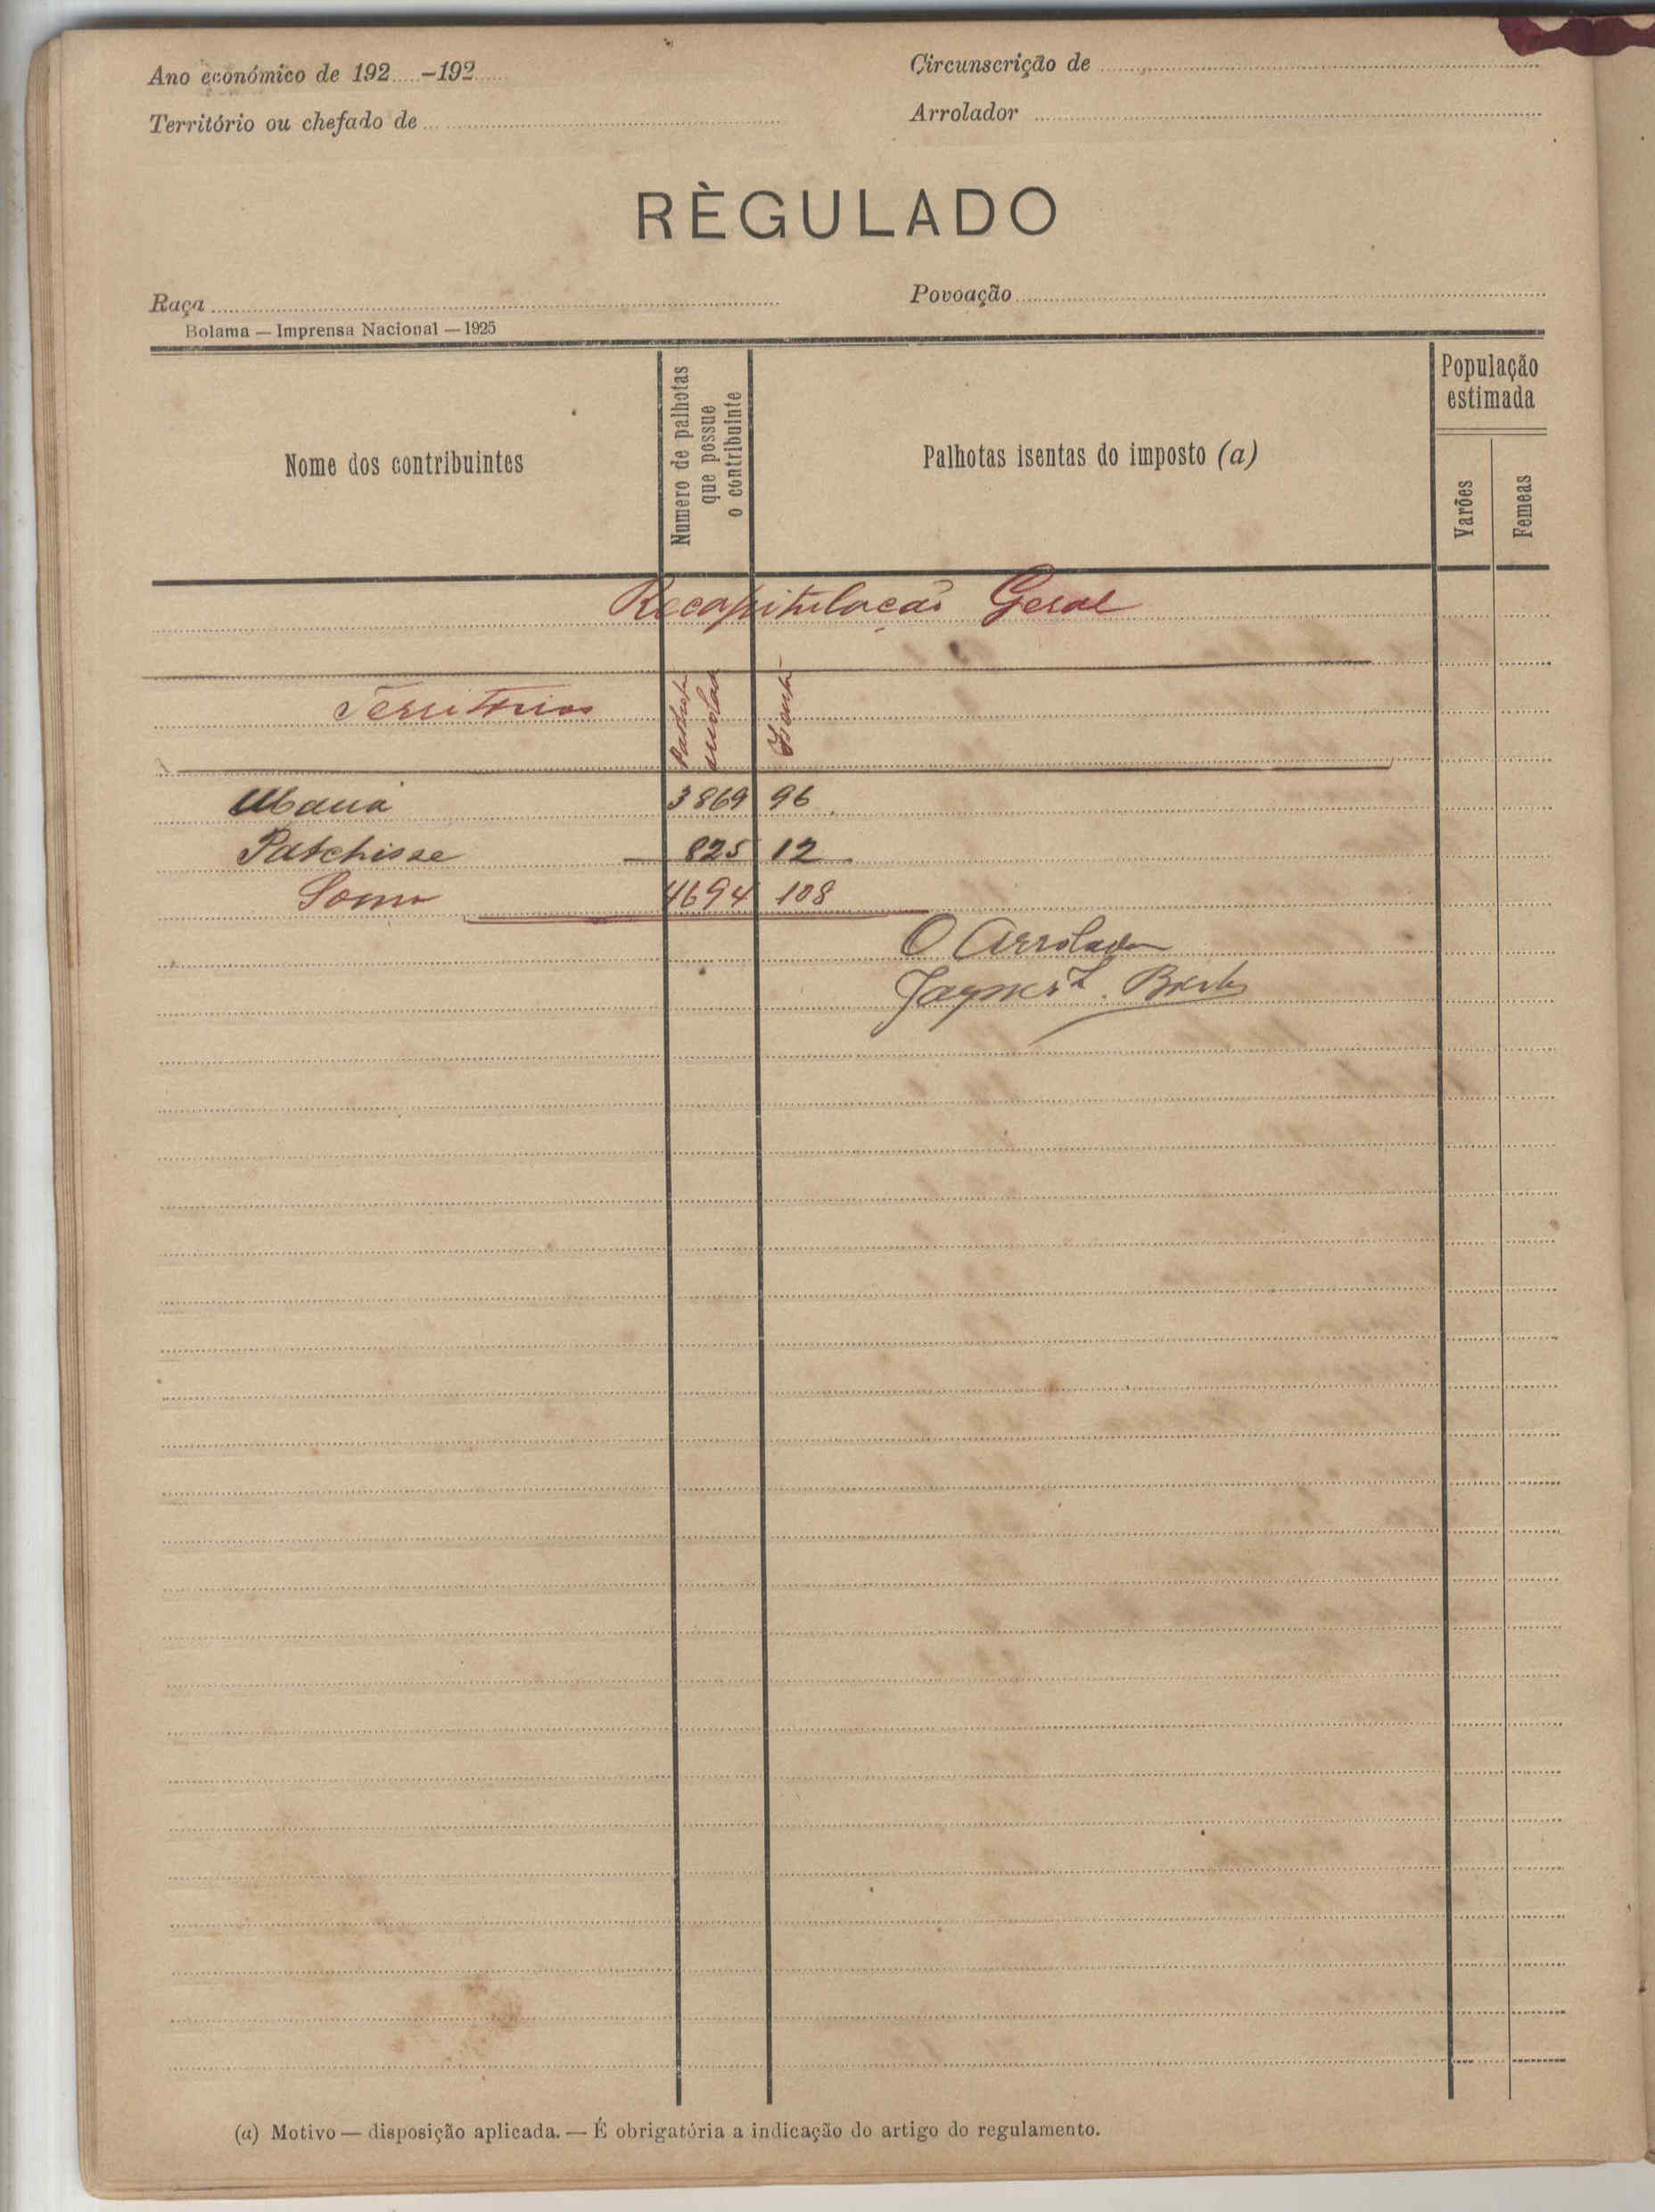 Ano económico de 192.....-192.....
Circunscrição de
Território ou chefado de
Arrolador
RÈGULADO
Raça
Povoação
Bolama — Imprensa Nacional — 1925
Nome dos contribuintes
Numero de palhotas
que possue
o contribuinte
Palhotas isentas do imposto (a)
População
estimada
Varões
Femeas
Recapitulação Geral
Territorios
3869 96
Patchisse 825 12
Soma 4694 108
O Arrolador
(a) Motivo — disposição aplicada. — É obrigatória a indicação do artigo do regulamento.